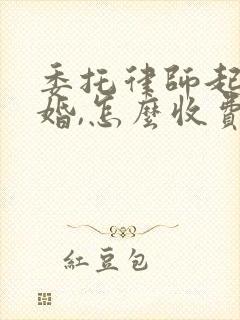 委托律師起
婚,怎麼收費
紅豆包